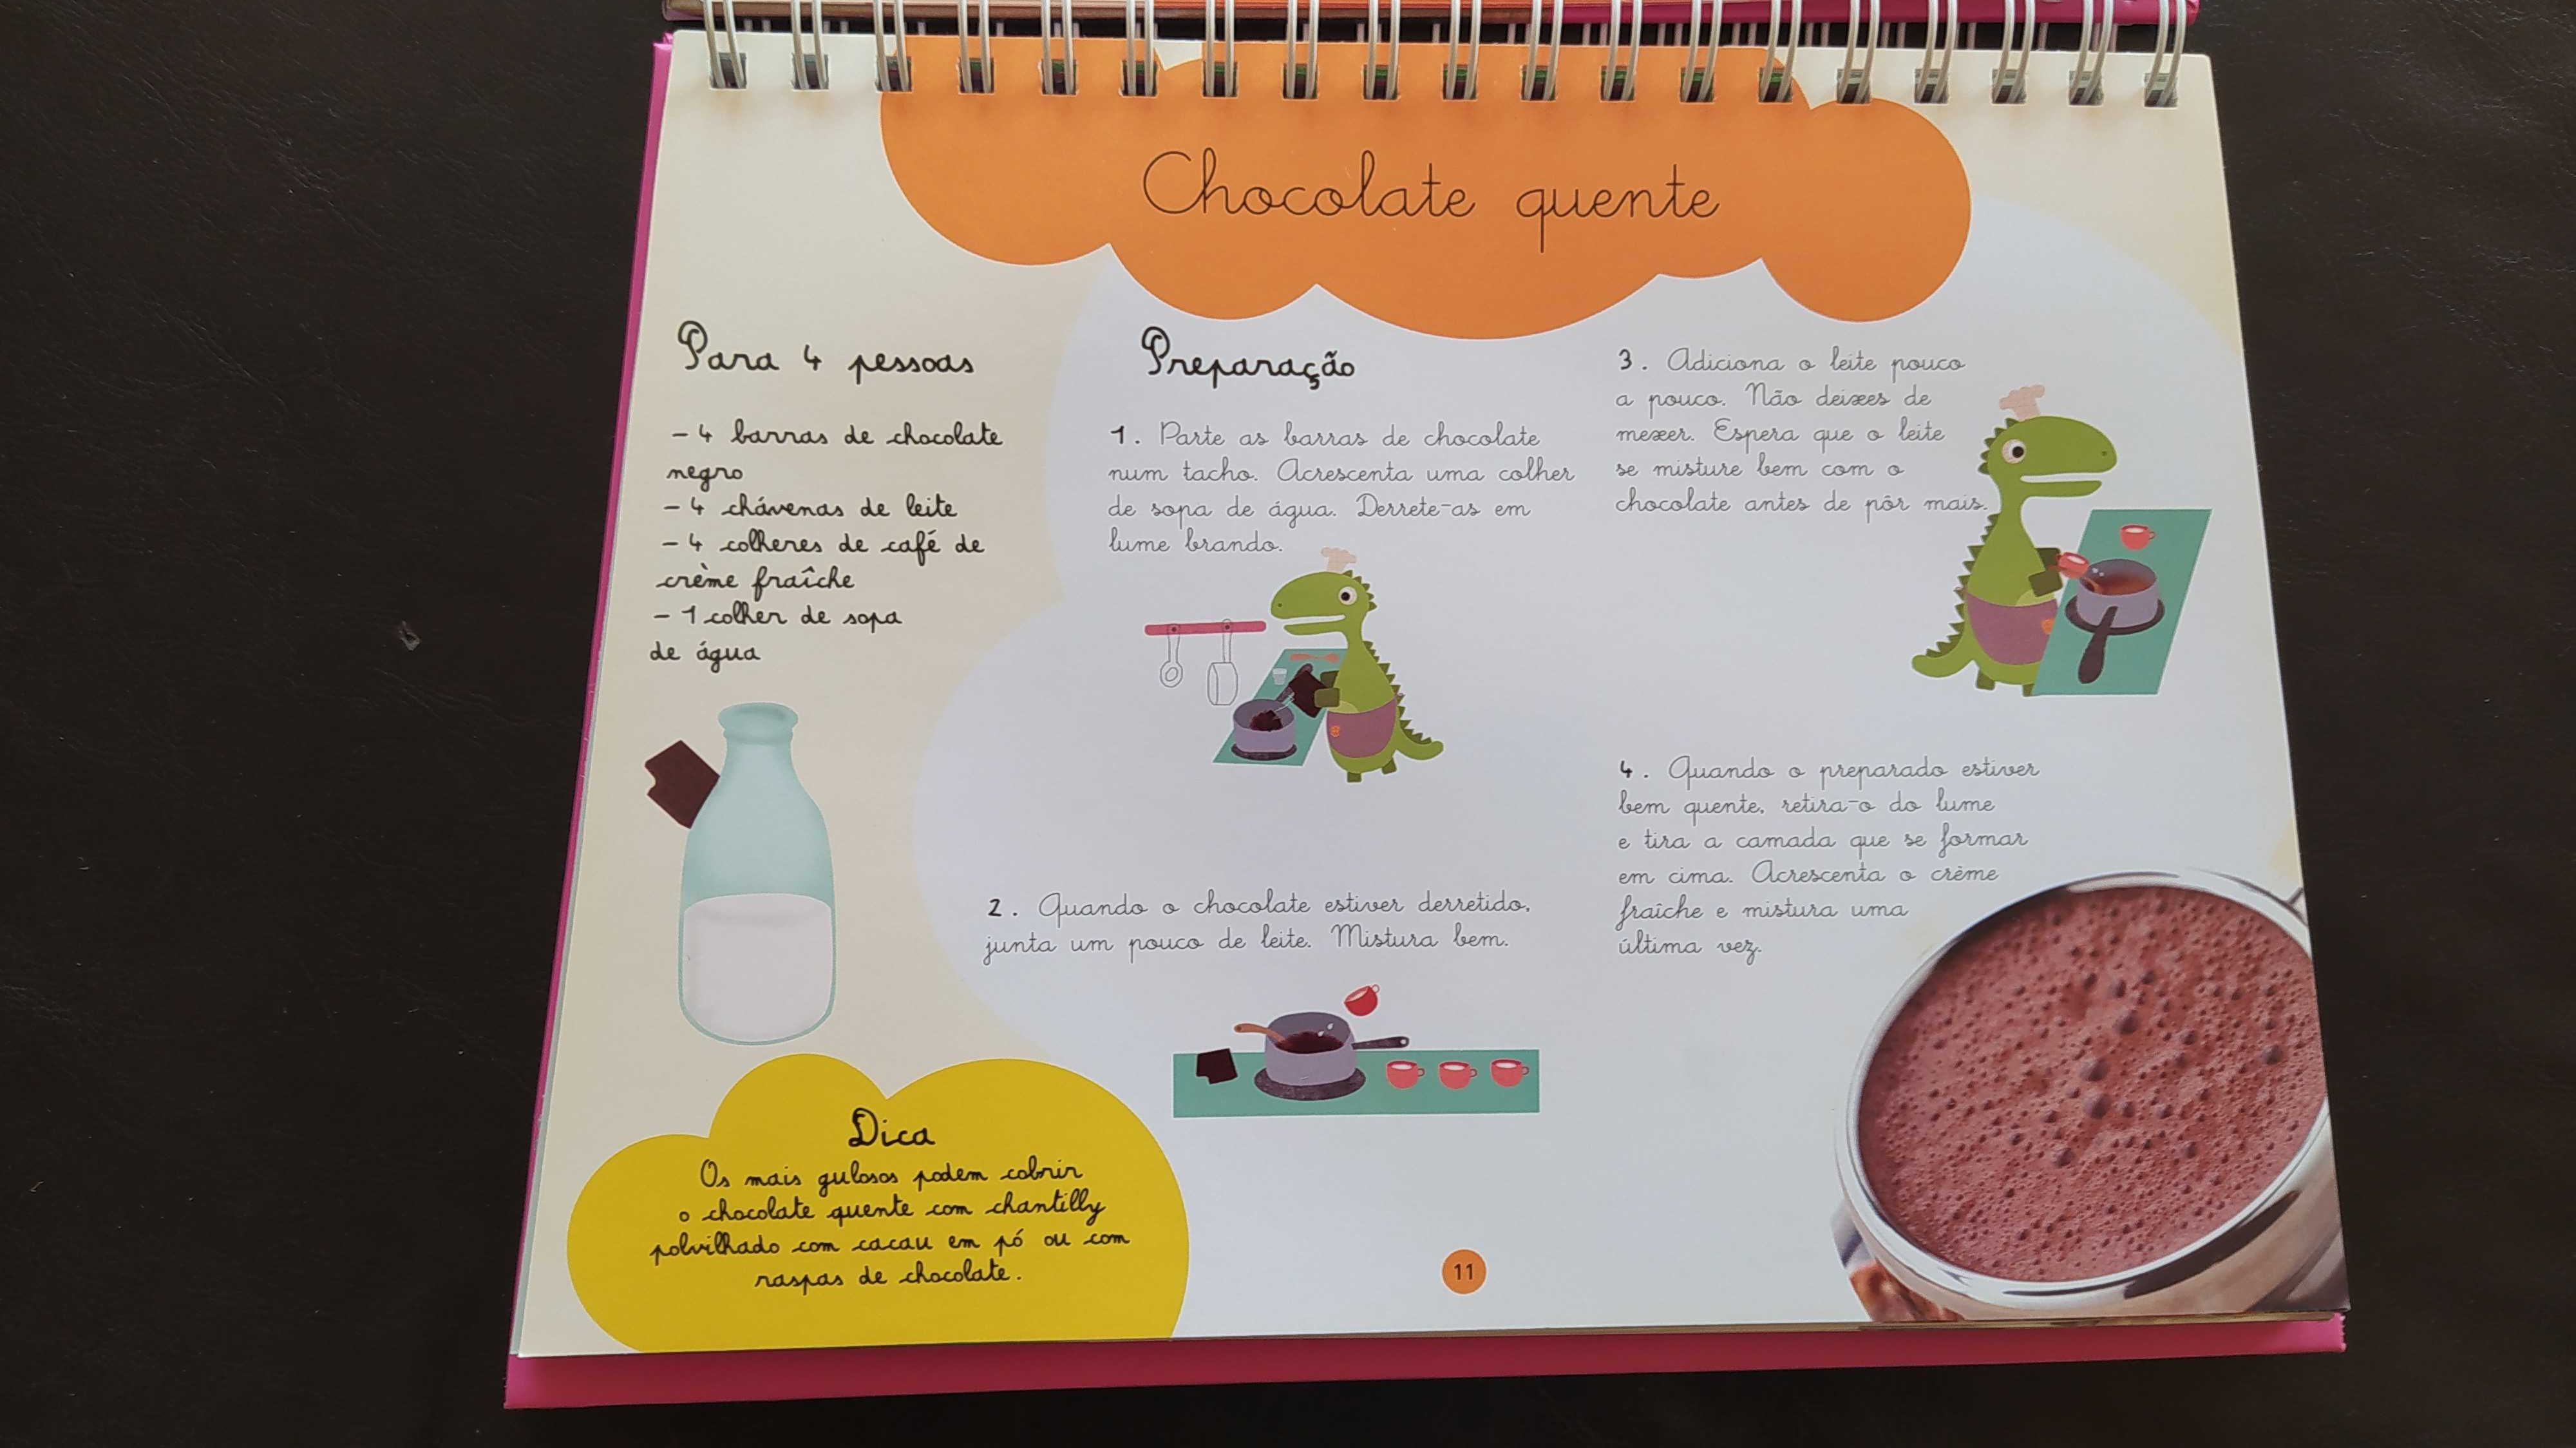 Chocolate quente
Para 4 pessoas
- 4 barras de chocolate
negro
- 4 chávenas de leite
- 4 colheres de café de
crème fraîche
- 1 colher de sopa
de água
Dica
Os mais gulosos podem cobrir
o chocolate quente com chantilly
polvilhado com cacau em pó ou com
raspas de chocolate.
Preparação
1. Parte as barras de chocolate
num tacho. Acrescenta uma colher
de sopa de água. Derrete-as em
lume brando.
2. Quando o chocolate estiver derretido,
junta um pouco de leite. Mistura bem.
3. Adiciona o leite pouco
a pouco. Não deixes de
mexer. Espera que o leite
se misture bem com o
chocolate antes de pôr mais.
4. Quando o preparado estiver
bem quente, retira-o do lume
e tira a camada que se formar
em cima. Acrescenta o crème
fraîche e mistura uma
última vez.
11